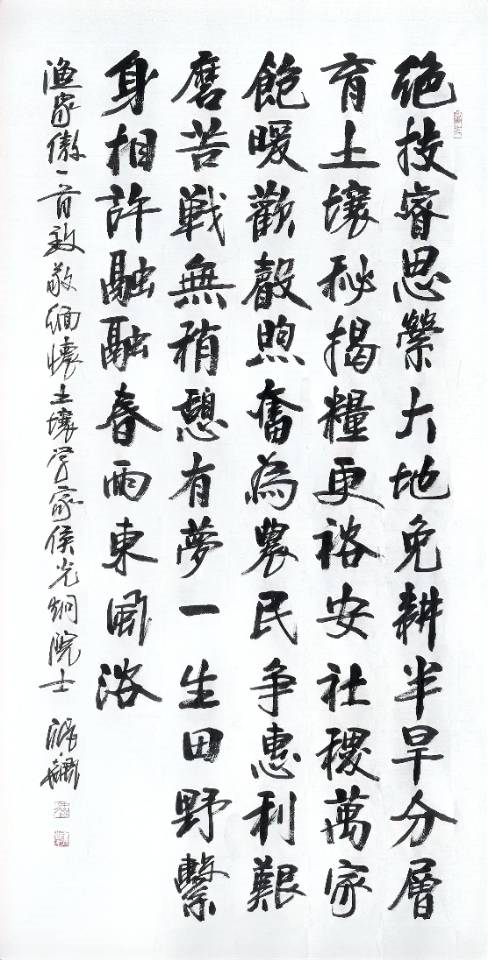 絕技睿思縈大地免耕半旱分層
育土壤秘揭糧更裕安社稷萬家
飽暖歡聲煦奮為農民争惠利艱
磨苦戦無稍憩有夢一生田野繫
身相許融融春雨東風浴
渔家傲一首致敬缅懷土壤学家侯光炯院士